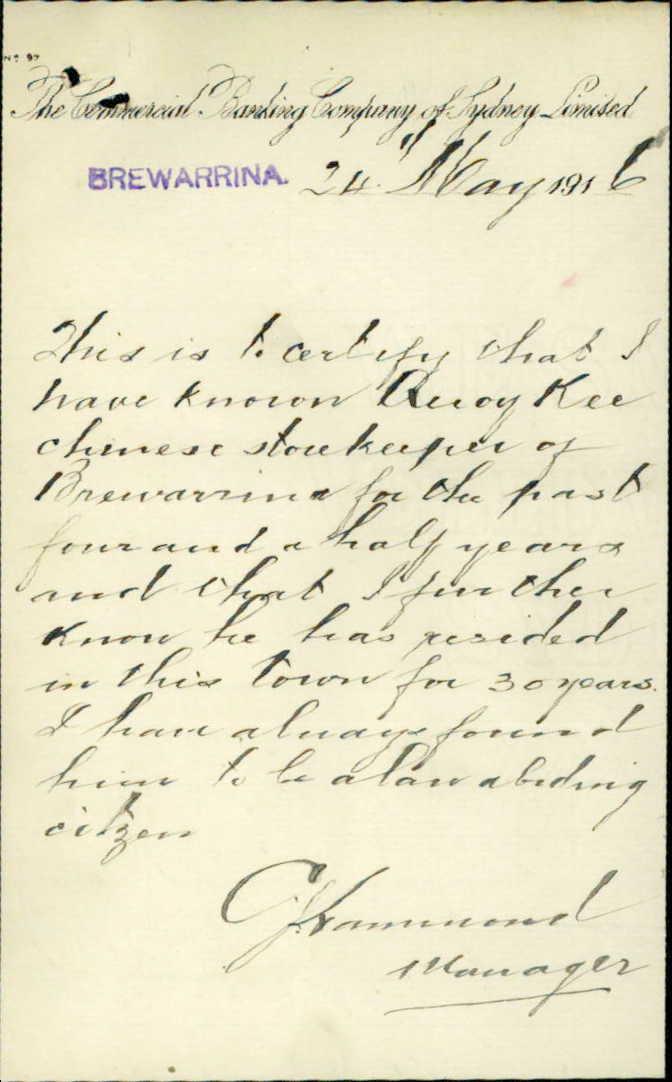 No 97
The Commercial Banking Company of Sydney Limited
BREWARRINA. 24. May 1916
This is to certify that I
have known Quoy Kee
chinese storekeeper of
Brewarrina for the past
four and a half years
and that I further
know he has resided
in this town for 30 years.
I have always found
him to be a law abiding
citzen
Hammond
Manager